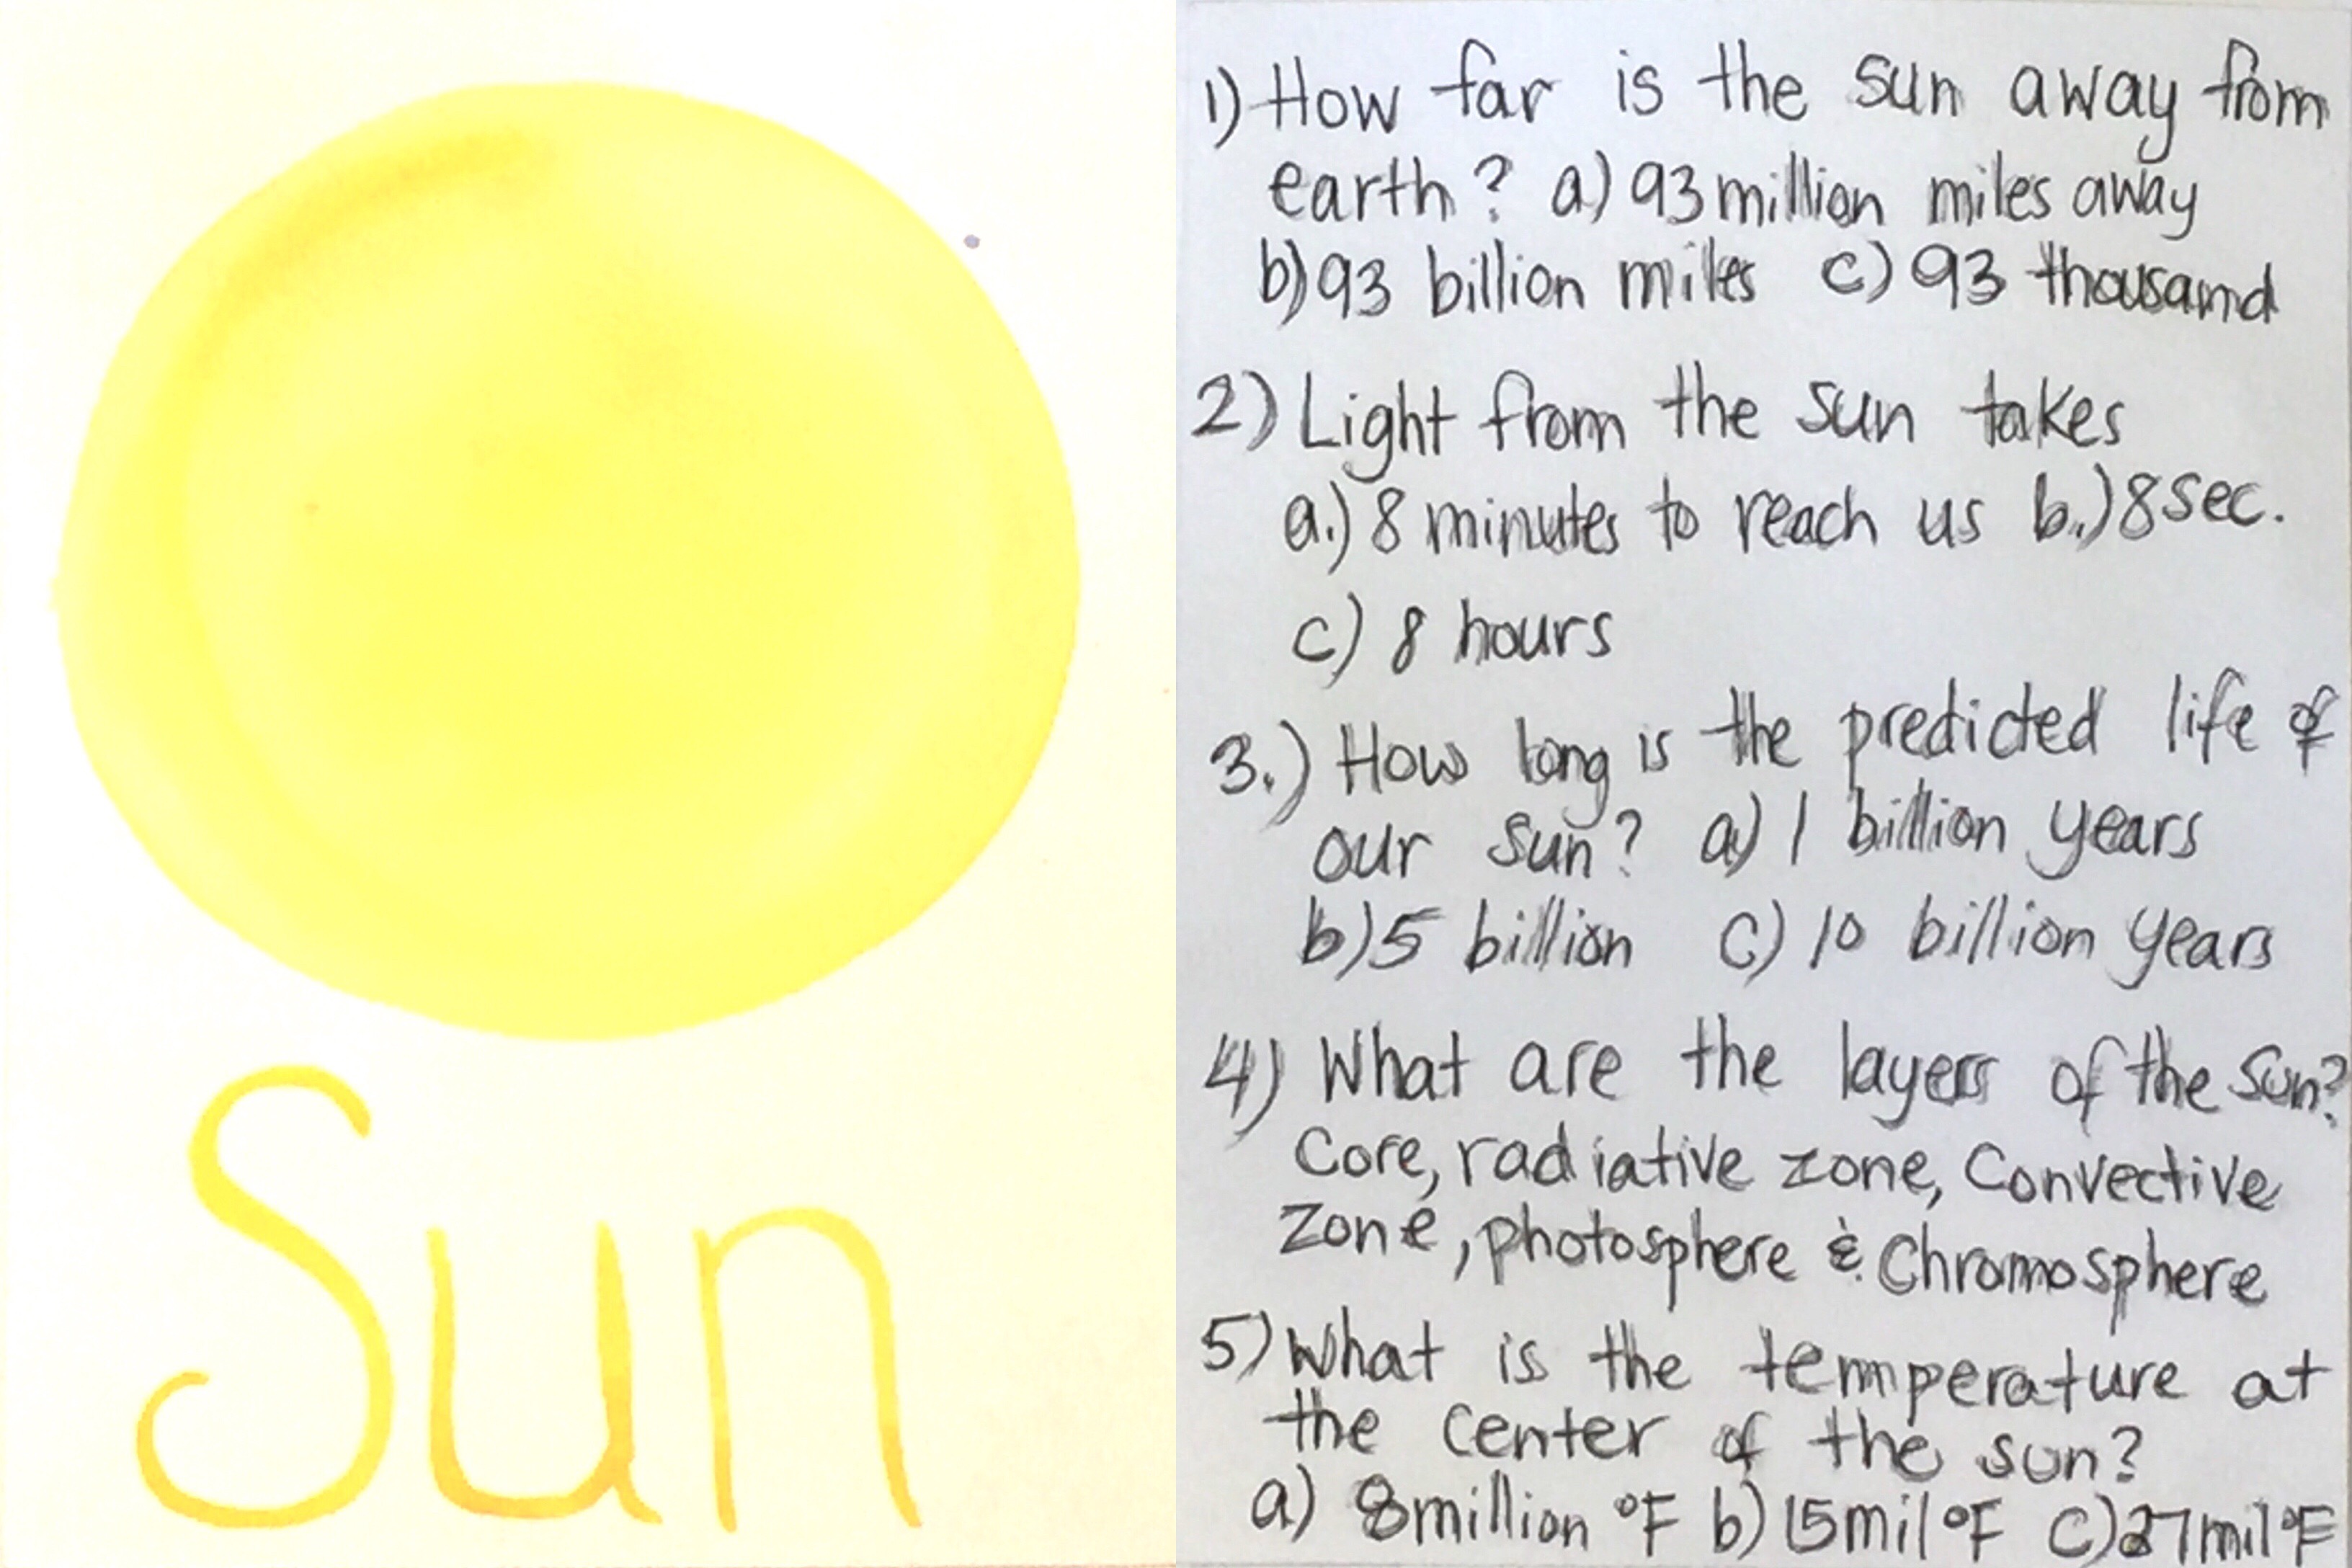 Sun
1) How far is the sun away from
earth? a) 93 million miles away
b) 93 billion miles c) 93 thousand
2) Light from the sun takes
a.) 8 minutes to reach us b.) 8 sec.
c) 8 hours
3.) How long is the predicted life of
our sun? a) 1 billion years
b) 5 billion c) 10 billion years
4) What are the layers of the sun?
Core, radiative zone, Convective
zone, photosphere & Chromosphere
5) What is the temperature at
the center of the sun?
a) 8 million °F b) 15 mil °F c) 27 mil °F